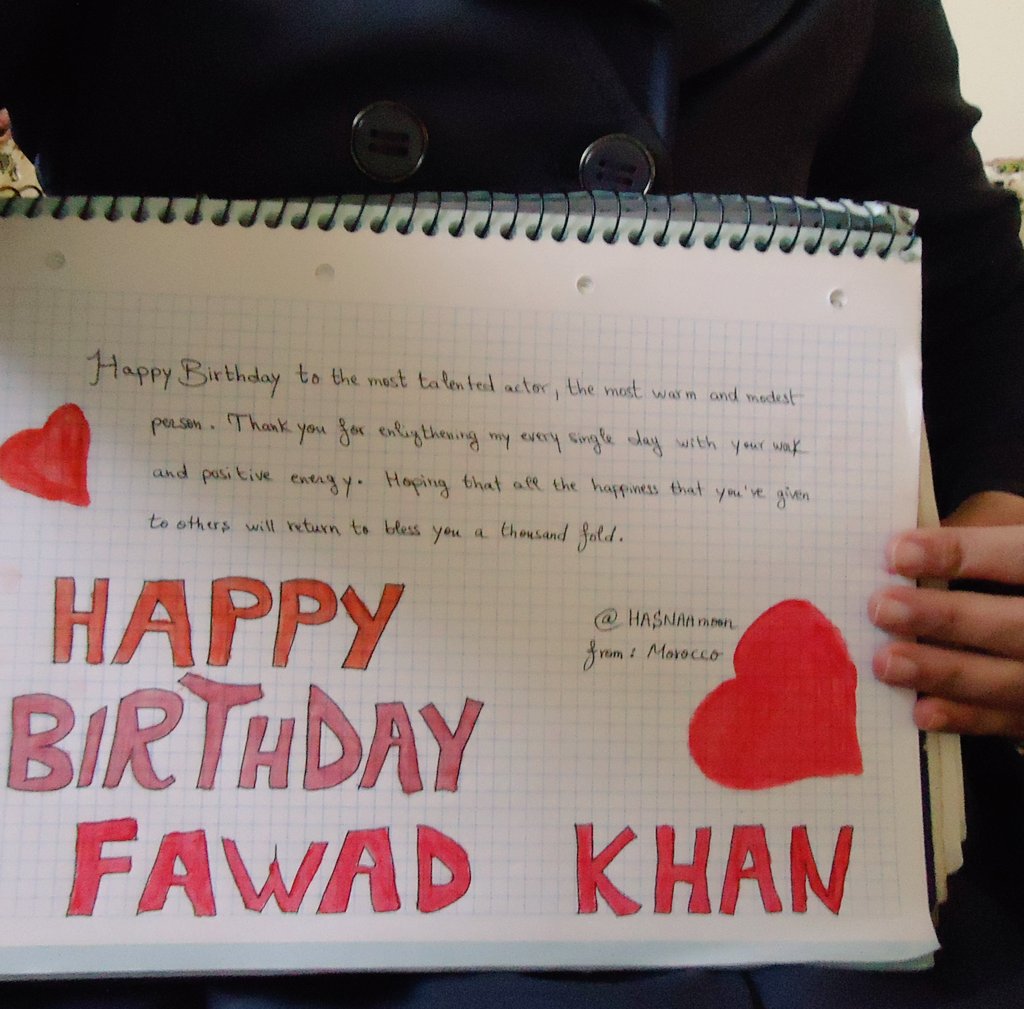 Happy Birthday to the most talented actor, the most warm and modest
person. Thank you for enligthening my every single day with your wok
and positive energy. Hoping that all the happiness that you've given
to others will return to bless you a thousand fold.
@HASNAAmoon
from: Morocco
HAPPY
BIRTHDAY
FAWAD KHAN